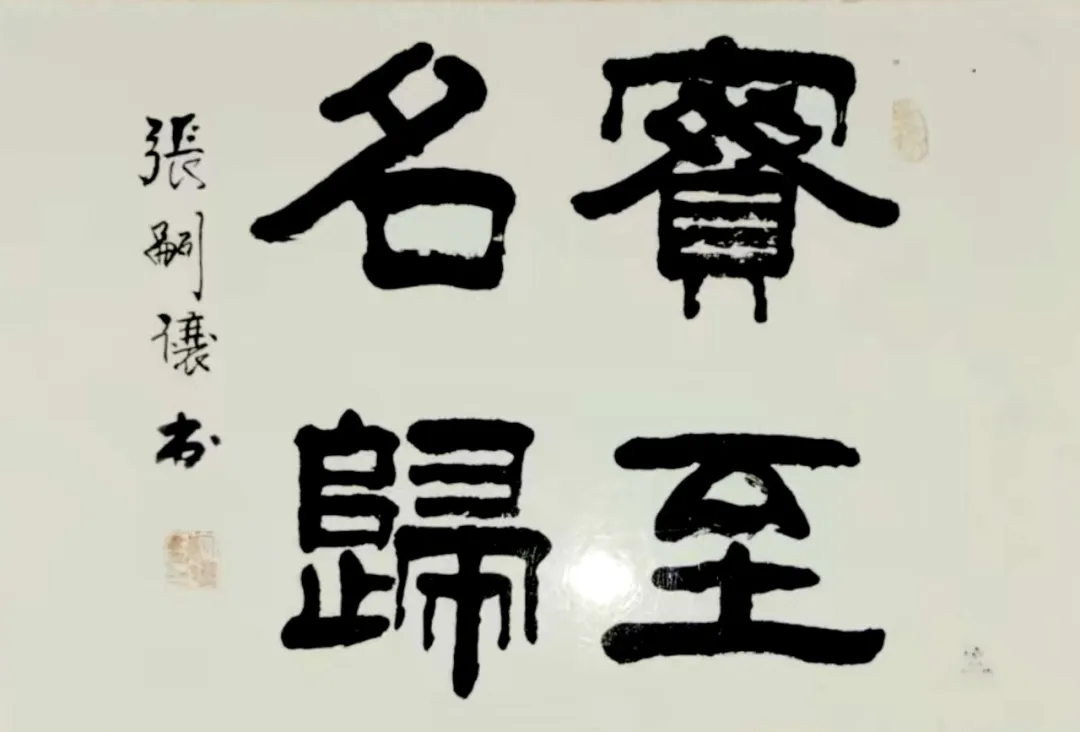 實至
名歸
張嗣讓书